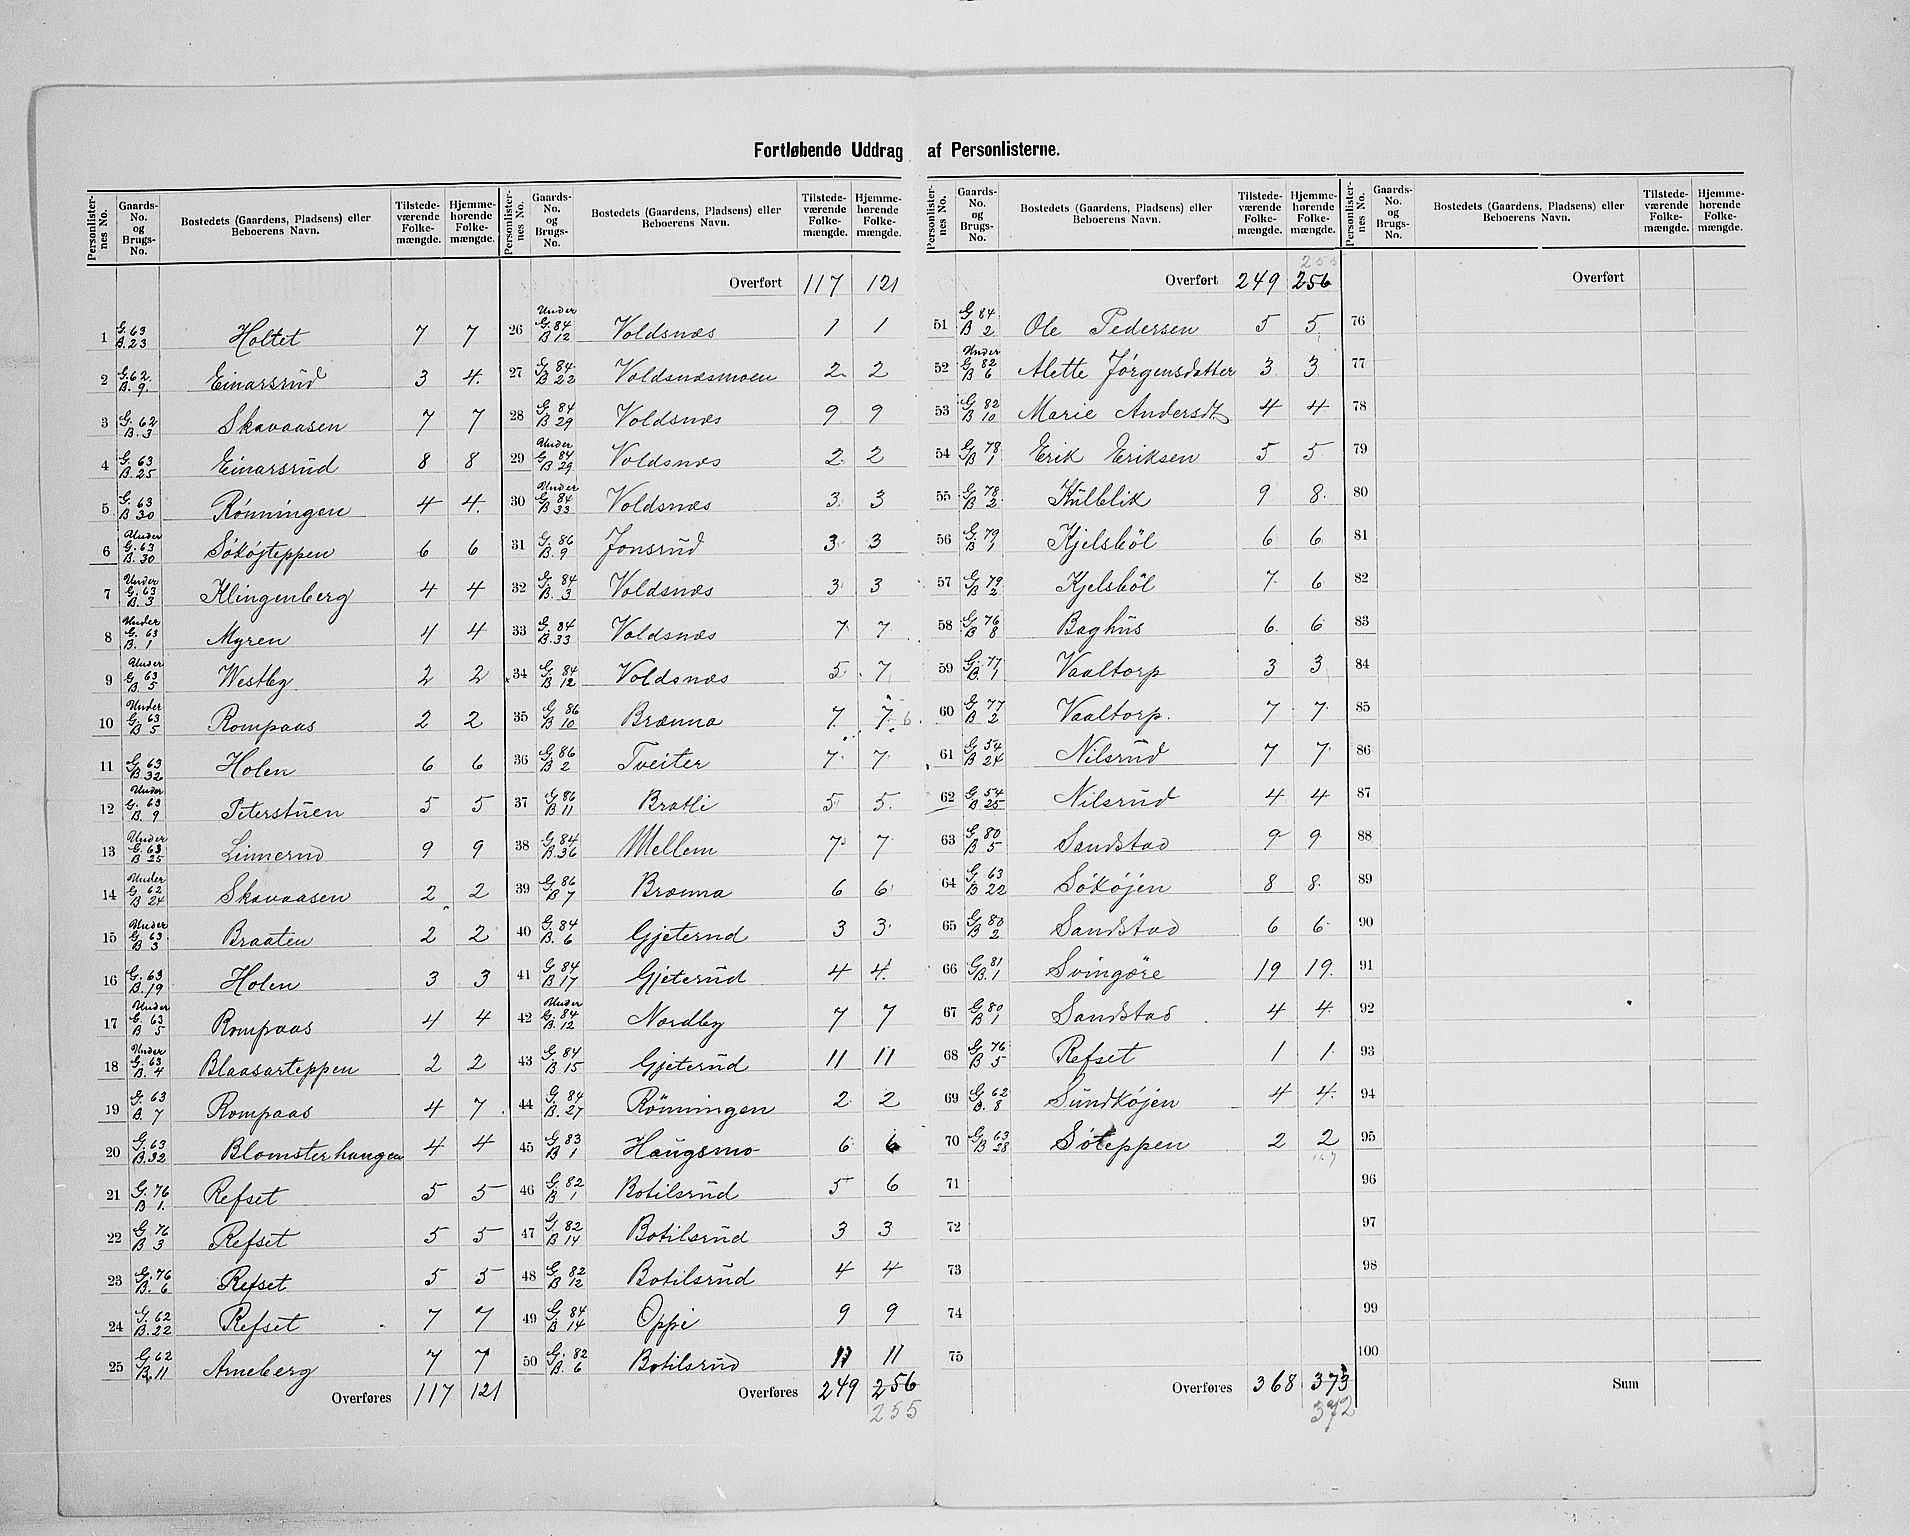 Fortløbende Uddrag af Personlisterne.
Personlister-nes No. | Gaards-No. og Brugs-No. | Bostedets (Gaardens, Pladsens) eller Beboerens Navn. | Tilstede-værende Folke-mængde. | Hjemme-hørende Folke-mængde.
1 | G. 63 B. 23 | Holtet | 7 | 7
2 | G. 62. B. 9. | Einarsrud | 3 | 4.
3 | G. 62 B. 3 | Skavaasen | 7 | 7
4 | G. 63 B. 25 | Einarsrud | 8 | 8
5 | G. 63 B 30 | Rønningen | 4 | 4.
6 | Under G. 63 B. 30 | Søkøjteppen | 6 | 6
7 | Under G. 63 B. 3 | Klingenberg | 4 | 4
8 | Under G. 63 B. 1 | Myren | 4 | 4
9 | Under G. 63 B. 5 | Westby | 2 | 2
10 | Under G. 63 B 5 | Rompaas | 2 | 2
11 | G. 63 B 32 | Holen | 6 | 6
12 | Under G. 63 B. 9 | Peterstuen | 5 | 5
13 | Under G. 63 B 25 | Linnerud | 9 | 9
14 | Under G. 62 B 24 | Skavaasen | 2 | 2
15 | Under G. 63 B 3 | Braaten | 2 | 2
16 | G. 63 B. 19 | Holen | 3 | 3
17 | Under G. 63 B 5 | Rompaas | 4 | 4
18 | Under G. 63 B. 4 | Blaasarteppen | 2 | 2
19 | G. 63 B 7 | Rompaas | 4 | 7
20 | G. 63 B. 32 | Blomsterhaugen | 4 | 4
21 | G. 76 B 1. | Refset | 5 | 5
22 | G. 76 B 3 | Refset | 5 | 5
23 | G. 76 B. 6 | Refset | 5 | 5
24 | G. 62 B. 22 | Refset | 7 | 7
25 | G. 62 B. 11 | Arneberg | 7 | 7
Overføres | 117 | 121
Personlister-nes No. | Gaards-No. og Brugs-No. | Bostedets (Gaardens, Pladsens) eller Beboerens Navn. | Tilstede-værende Folke-mængde. | Hjemme-hørende Folke-mængde.
Overført | 117 | 121
26 | Under G. 84 B 12 | Voldsnæs | 1 | 1
27 | G. 84 B 22 | Voldsnæsmoen | 2 | 2
28 | G. 84 B 29 | Voldsnæs | 9 | 9
29 | Under G. 84 B 29 | Voldsnæs | 2 | 2
30 | Under G. 84 B. 33 | Voldsnæs | 3 | 3
31 | G. 86 B. 9 | Jonsrud | 3 | 3
32 | G. 84 B. 3 | Voldsnæs | 3 | 3
33 | G. 84 B. 33 | Voldsnæs | 7 | 7
34 | G. 84 B 12 | Voldsnæs | 5 | 7
35 | G. 86 B 10 | Brænna | 7. | 7 6
36 | G. 86 B 2 | Tveiter | 7 | 7
37 | G. 86 B 11 | Bratli | 5 | 5.
38 | G. 84 B. 36 | Mellem | 7 | 7
39 | G. 86 B 7 | Brænna | 6 | 6
40 | G. 84 B. 6 | Gjeterud | 3 | 3
41 | G. 84 B 17 | Gjeterud | 4 | 4.
42 | Under G. 84 B. 12 | Nordby | 7 | 7
43 | G. 84 B 15 | Gjeterud | 11 | 11
44 | G. 84 B. 27 | Rönningen | 2 | 2
45 | G. 83 B 1 | Haugsmo | 6 | 6
46 | G. 82 B 1 | Botilsrud | 5 | 6
47 | G. 82 B 14 | Botilsrud | 3 | 3
48 | G. 82 B 12 | Botilsrud | 4 | 4
49 | G. 84 B 14 | Oppi | 9 | 9
50 | G. 82 B. 6 | Botilsrud | 11 | 11
Overføres | 249 | 256
255
Personlister-nes No. | Gaards-No. og Brugs-No. | Bostedets (Gaardens, Pladsens) eller Beboerens Navn. | Tilstede-værende Folke-mængde. | Hjemme-hørende Folke-mængde.
255
Overført | 249 | 256
51 | G 84 B 2 | Ole Pedersen | 5 | 5
52 | Under G. 82 B 6 | Alette Jørgensdatter | 3 | 3
53 | G. 82 B 10 | Marie Andersdt. | 4 | 4
54 | G. 78 B 1 | Erik Eriksen | 5 | 5
55 | G. 78 B 2 | Kulblik | 9 | 8.
56 | G. 79 B 1 | Kjelsböl | 6 | 6
57 | G. 79 B 2 | Kjelsböl | 7 | 6
58 | G. 76 B 8 | Baghus | 6 | 6
59 | G. 77 B. 1 | Vaaltorp | 3 | 3
60 | G. 77 B 2 | Vaaltorp. | 7 | 7
61 | G. 54 B 24 | Nilsrud | 7 | 7
62 | G. 54 B 25 | Nilsrud | 4 | 4
63 | G. 80 B 5 | Sandstad | 9 | 9
64 | G. 63 B 22 | Søkøjen | 8 | 8.
65 | G. 80 B 2 | Sandstad | 6 | 6
66 | G. 81 B. 1 | Svingöre | 19 | 19.
67 | G. 80 B 1 | Sandstad | 4 | 4.
68 | G. 76 B 5 | Refset | 1 | 1
69 | G. 62 B. 8 | Sundkøjen | 4 | 4.
70 | G. 63 B 28 | Søteppen | 2 | 2
71
72
73
74
75
Overføres | 368 | 373
372
Personlister-nes No. | Gaards-No. og Brugs-No. | Bostedets (Gaardens, Pladsens) eller Beboerens Navn. | Tilstede-værende Folke-mængde. | Hjemme-hørende Folke-mængde.
Overført
76
77
78
79
80
81
82
83
84
85
86
87
88
89
90
91
92
93
94
95
96
97
98
99
100
Sum